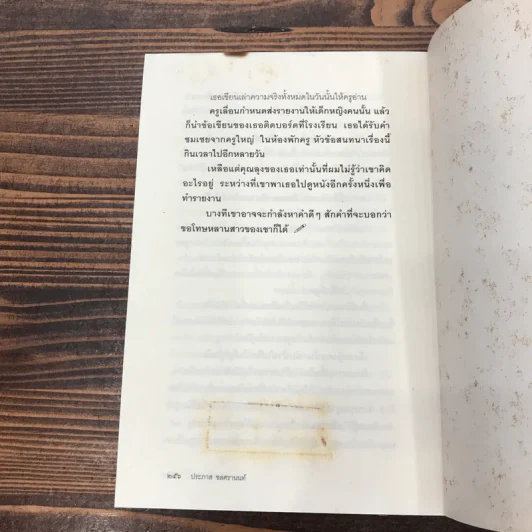 เธอเขียนเล่าความจริงทั้งหมดในวันนั้นให้ครูอ่าน
ครูเลื่อนกำหนดส่งรายงานให้เด็กหญิงคนนั้น แล้ว
ก็นำข้อเขียนของเธอติดบอร์ดที่โรงเรียน เธอได้รับคำ
ชมเชยจากครูใหญ่ ในห้องพักครู หัวข้อสนทนาเรื่องนี้
กินเวลาไปอีกหลายวัน
เหลือแต่คุณลุงของเธอเท่านั้นที่ผมไม่รู้ว่าเขาคิด
อะไรอยู่ ระหว่างที่เขาพาเธอไปดูหนังอีกครั้งหนึ่งเพื่อ
ทำรายงาน
บางทีเขาอาจจะกำลังหาคำดีๆ สักคำที่จะบอกว่า
ขอโทษหลานสาวของเขาก็ได้
๒๕๖ ประภาส ชลศรานนท์